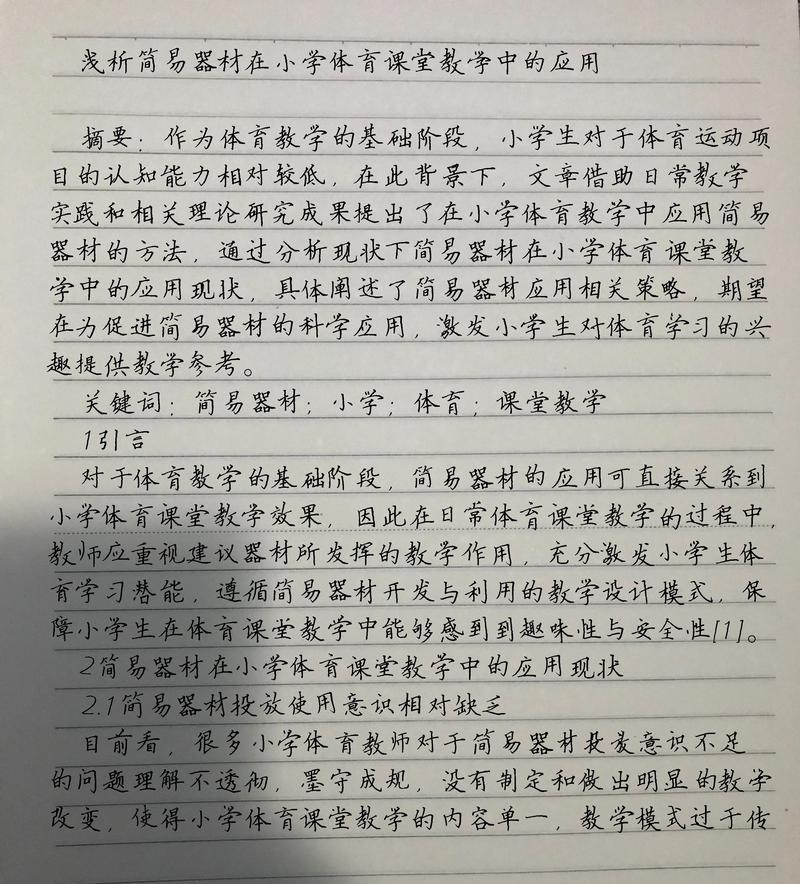 浅析简易器材在小学体育课堂教学中的应用
摘要：作为体育教学的基础阶段，小学生对于体育运动项
目的认知能力相对较低，在此背景下，文章借助日常教学
实践和相关理论研究成果提出了在小学体育教学中应用简易
器材的方法，通过分析现状下简易器材在小学体育课堂教
学中的应用现状，具体阐述了简易器材应用相关策略，期望
在为促进简易器材的科学应用，激发小学生对体育学习的兴
趣提供教学参考。
关键词：简易器材；小学；体育；课堂教学
1引言
对于体育教学的基础阶段，简易器材的应用可直接关系到
小学体育课堂教学效果，因此在日常体育课堂教学的过程中，
教师应重视建议器材所发挥的教学作用，充分激发小学生体
育学习潜能，遵循简易器材开发与利用的教学设计模式，保
障小学生在体育课堂教学中能够感到到趣味性与安全性[1]。
2简易器材在小学体育课堂教学中的应用现状
2.1简易器材投放使用意识相对缺乏
目前看，很多小学体育教师对于简易器材投意识不足
的问题理解不透彻，墨守成规，没有制定和做出明显的教学
改变，使得小学体育课堂教学的内容单一，教学模式过于传